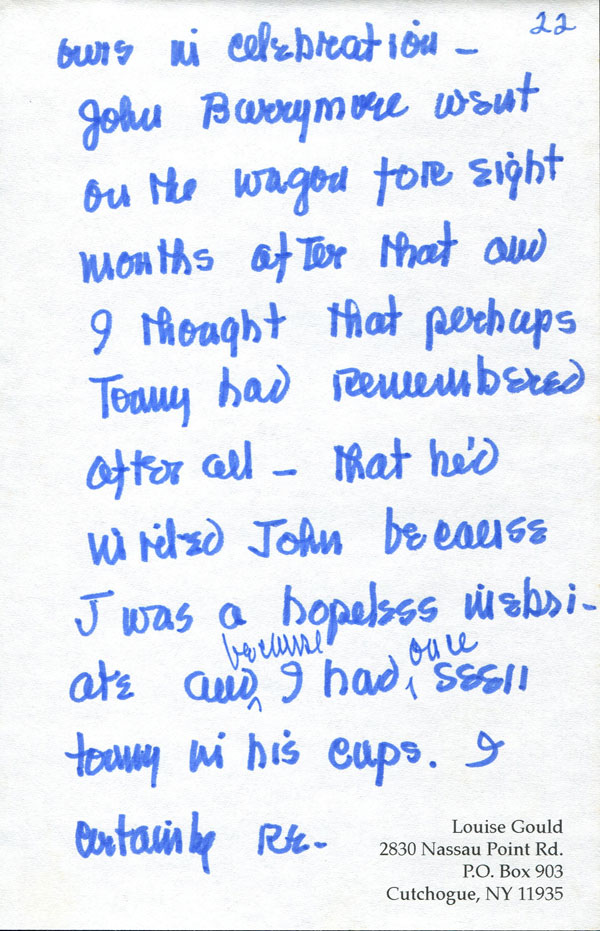 22
ours in celebration –
John Barrymore went
on the wagon fore eight
months after that and
I thought that perhaps
Tommy had remembered
after all – that he'd
invited John because
J was a hopeless inebri-
ate and because I had once seen
tommy in his cups. I
certainly re-
Louise Gould
2830 Nassau Point Rd.
P.O. Box 903
Cutchogue, NY 11935